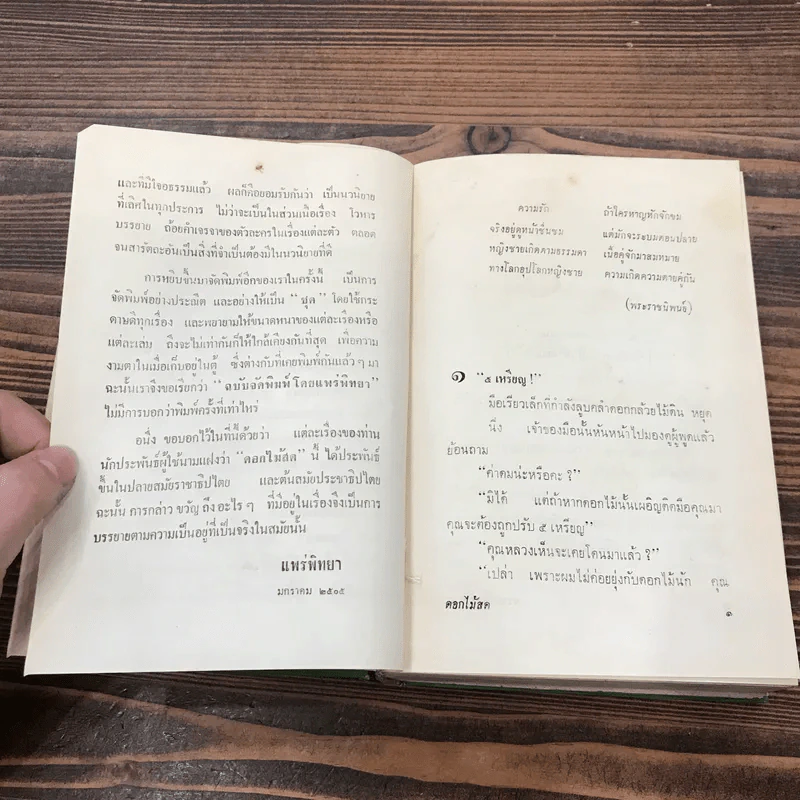 และที่มีใจอธรรมแล้ว ผลก็คือยอมรับกันว่า เป็นนวนิยาย
ที่เลิศในทุกประการ ไม่ว่าจะเป็นในส่วนเนื้อเรื่อง โวหาร
บรรยาย ถ้อยคำเจรจาของตัวละครในเรื่องแต่ละตัว ตลอด
จนสารัตถะอันเป็นสิ่งที่จำเป็นต้องมีในนวนิยายที่ดี
การหยิบขึ้นมาจัดพิมพ์อีกของเราในครั้งนี้ เป็นการ
จัดพิมพ์อย่างประณีต และอย่างให้เป็น “ชุด” โดยใช้กระ
ดาษดีทุกเรื่อง และพยายามให้ขนาดหนาของแต่ละเรื่องหรือ
แต่ละเล่ม ถึงจะไม่เท่ากันก็ให้ใกล้เคียงกันที่สุด เพื่อความ
งามตาในเมื่อเก็บอยู่ในตู้ ซึ่งต่างกับที่เคยพิมพ์กันแล้ว ๆ มา
ฉะนั้นเราจึงขอเรียกว่า “ฉบับจัดพิมพ์โดยแพร่พิทยา”
ไม่มีการบอกว่าพิมพ์ครั้งที่เท่าไหร่
อนึ่ง ขอบอกไว้ในที่นี้ด้วยว่า แต่ละเรื่องของท่าน
นักประพันธ์ผู้ใช้นามแฝงว่า “ดอกไม้สด” นี้ ได้ประพันธ์
ขึ้นในปลายสมัยราชาธิปไตย และต้นสมัยประชาธิปไตย
ฉะนั้น การกล่าว ขวัญ ถึง อะไร ๆ ที่มีอยู่ในเรื่องจึงเป็นการ
บรรยายตามความเป็นอยู่ที่เป็นจริงในสมัยนั้น
แพร่พิทยา
มกราคม ๒๕๐๕
ความรัก ถ้าใครหาญหักจักขม
จริงอยู่ดูหน้าชื่นชม แต่มักจะระบมตอนปลาย
หญิงชายเกิดตามธรรมดา เนื้อคู่จักมาสมหมาย
ทางโลกอุปโลกหญิงชาย ความเกิดความตายคู่กัน
(พระราชนิพนธ์)
๑ “๕ เหรียญ !”
มือเรียวเล็กที่กำลังลูบคลำดอกกล้วยไม้ดิน หยุด
นิ่ง เจ้าของมือนั้นหันหน้าไปมองดูผู้พูดแล้ว
ย้อนถาม
“ค่าดมน่ะหรือคะ ?”
“มิได้ แต่ถ้าหากดอกไม้นั้นเผอิญติดมือคุณมา
คุณจะต้องถูกปรับ ๕ เหรียญ”
“คุณหลวงเห็นจะเคยโดนมาแล้ว ?”
“เปล่า เพราะผมไม่ค่อยยุ่งกับดอกไม้นัก คุณ
ดอกไม้สด
๑